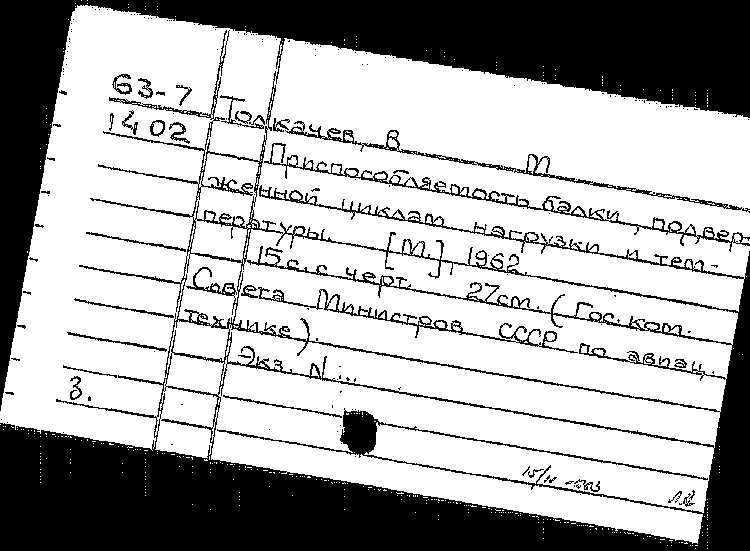 63-7
1402
Толкачев, В М
Приспособляемость балки, подвер-
женной циклам нагрузки и тем-
пературы. [М.], 1962.
15 с. с черт. 27см. (Гос. ком.
Совета Министров СССР по авиац.
технике).
Экз. N ...
3.